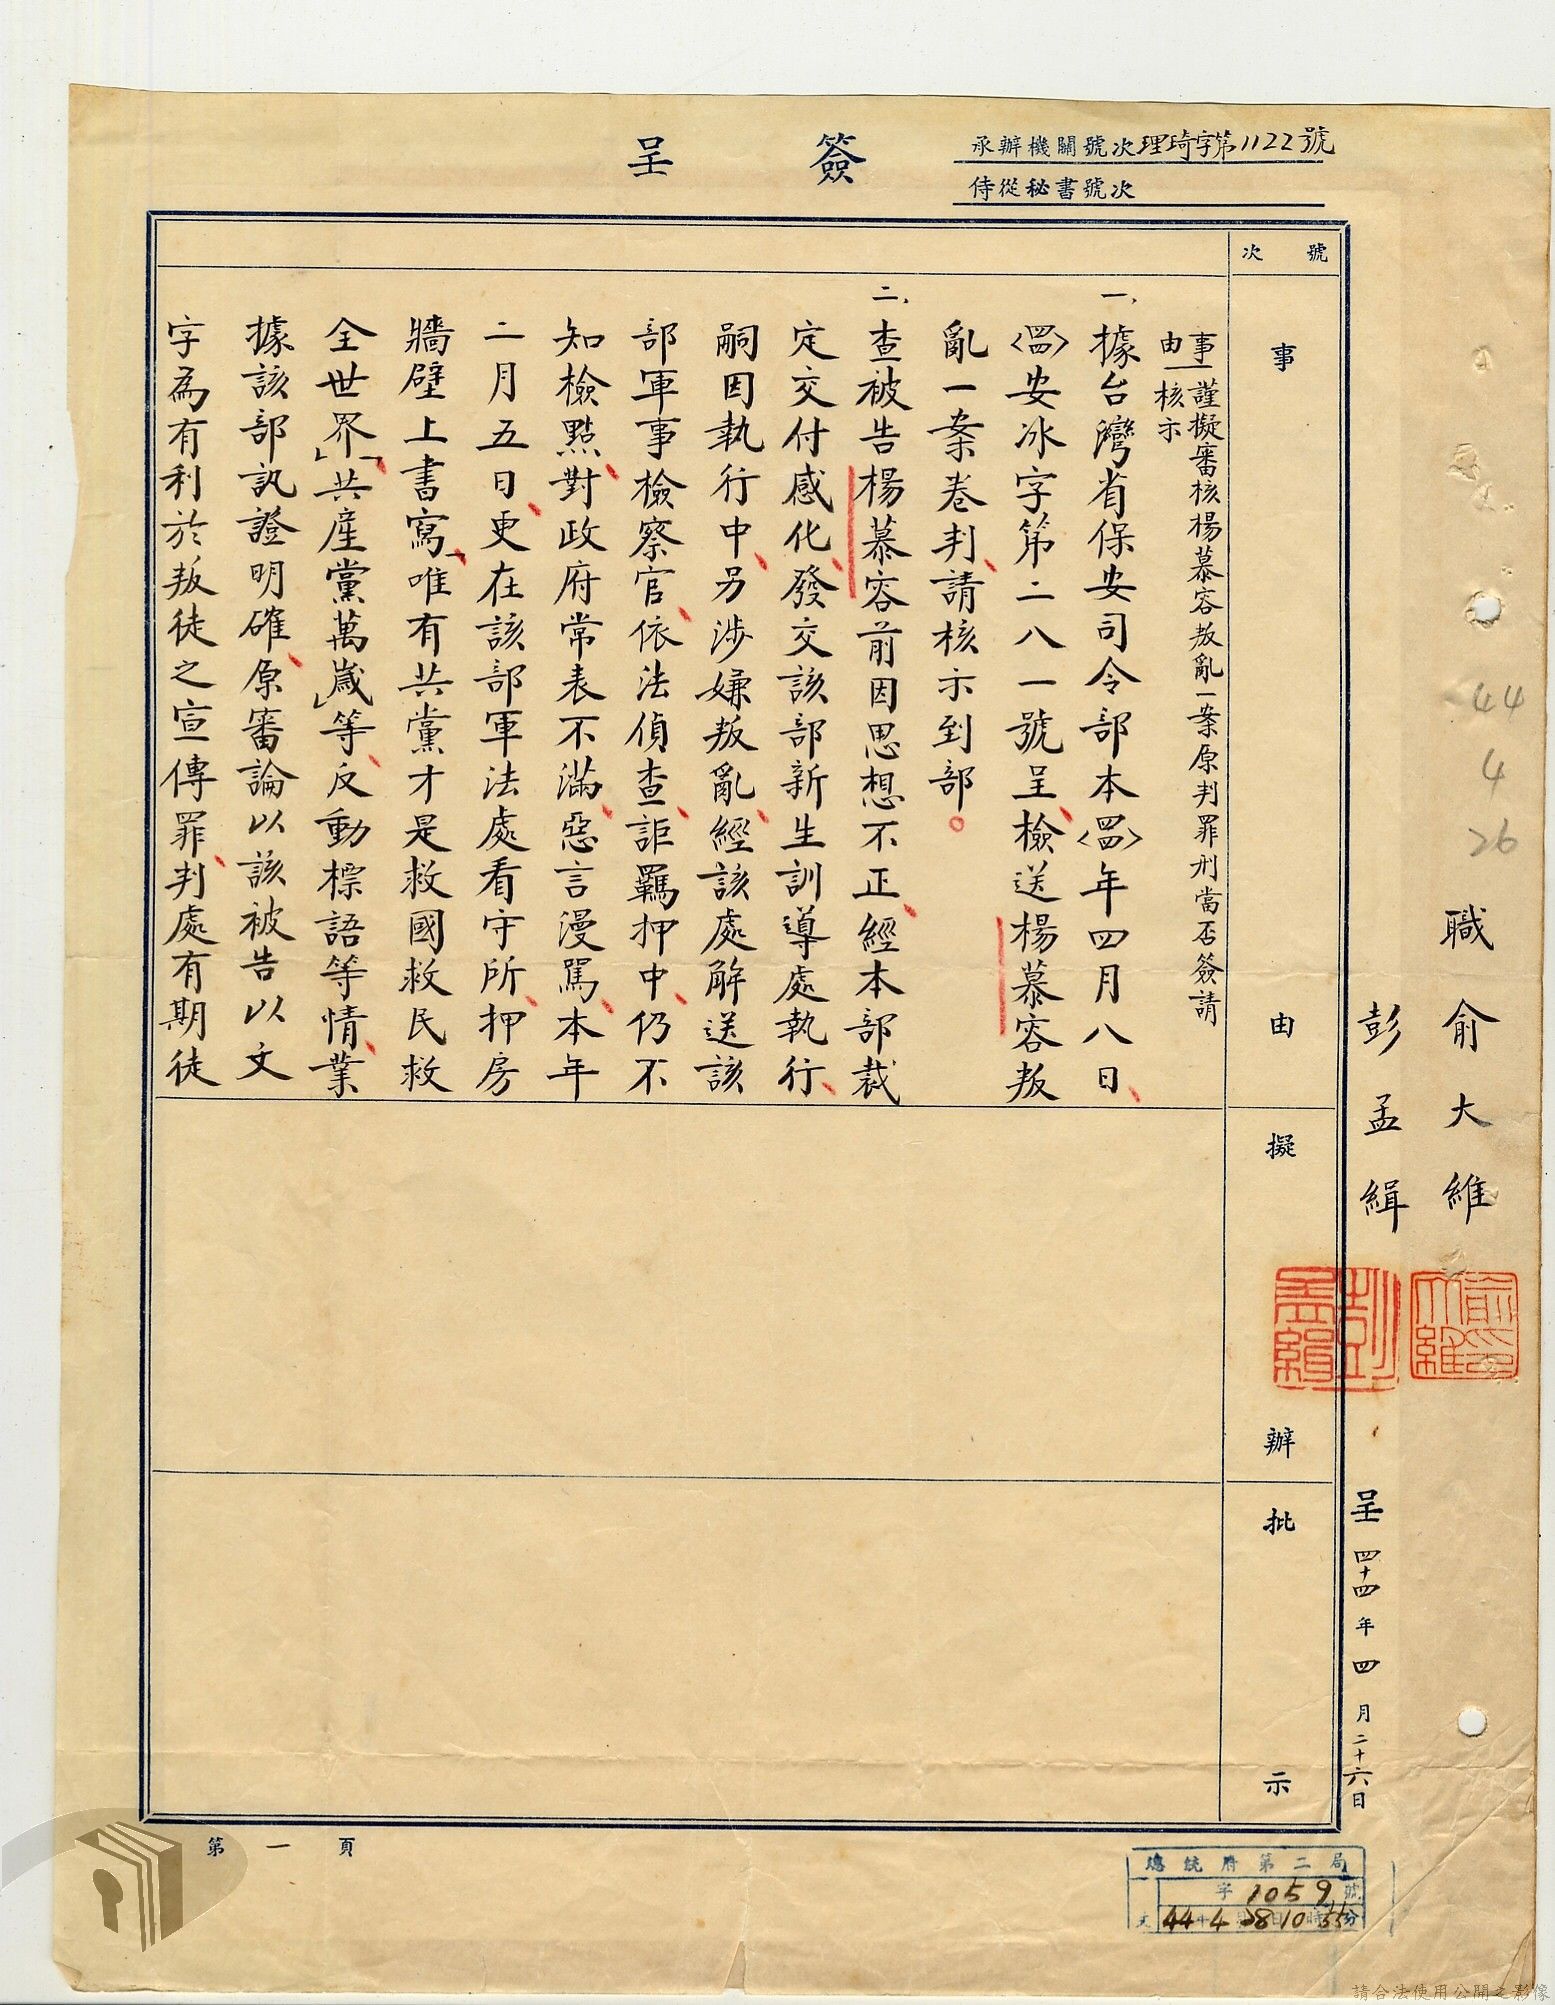 簽呈
承辦機關號次理琦字第1122號
侍從秘書號次
職俞大維
彭孟緝
俞大維印
彭孟緝
呈 四十四年四月二十六日
44
4
26
號次
事由
擬辦
批示
事由一謹擬審核楊慕容叛亂一案原判罪刑當否簽請
核示
一、據台灣省保安司令部本〈四四〉年四月八日
〈四四〉安冰字第二八一號呈檢送楊慕容叛
亂一案卷判請核示到部。
二、查被告楊慕容前因思想不正經本部裁
定交付感化發交該部新生訓導處執行
嗣因執行中另涉嫌叛亂經該處解送該
部軍事檢察官依法偵查詎羈押中仍不
知檢點對政府常表不滿惡言漫罵本年
二月五日更在該部軍法處看守所押房
牆壁上書寫「唯有共黨才是救國救民救
全世界」「共產黨萬歲」等反動標語等情業
據該部訊證明確原審論以該被告以文
字為有利於叛徒之宣傳罪判處有期徒
第一頁
總統府第二局
字1059號
44 4 28 10 55分
請合法使用公開之影像